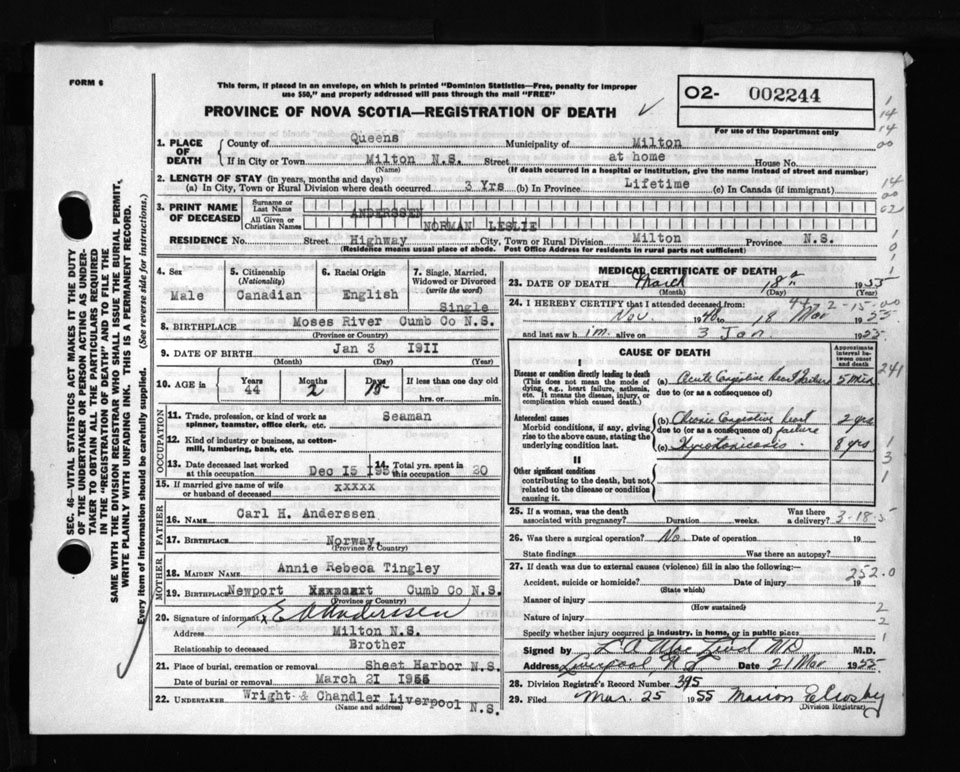 FORM 6
This form, if placed in an envelope, on which is printed "Dominion Statistics—Free, penalty for improper
use $50," and properly addressed will pass through the mail "FREE"
PROVINCE OF NOVA SCOTIA—REGISTRATION OF DEATH
O2- 002244
For use of the Department only
SEC. 46—VITAL STATISTICS ACT MAKES IT THE DUTY
OF THE UNDERTAKER OR PERSON ACTING AS UNDER-
TAKER TO OBTAIN ALL THE PARTICULARS REQUIRED
IN THE "REGISTRATION OF DEATH" AND TO FILE THE
SAME WITH THE DIVISION REGISTRAR WHO SHALL ISSUE THE BURIAL PERMIT.
WRITE PLAINLY WITH UNFADING INK. THIS IS A PERMANENT RECORD.
Every item of information should be carefully supplied. (See reverse side for instructions.)
1. PLACE OF DEATH County of Queens Municipality of Milton
If in City or Town Milton N.S. Street at home House No.
(Name) (If death occurred in a hospital or institution, give the name instead of street and number)
2. LENGTH OF STAY (in years, months and days)
(a) In City, Town or Rural Division where death occurred 3 Yrs (b) In Province Lifetime (c) In Canada (if immigrant)
3. PRINT NAME OF DECEASED Surname or Last Name ANDERSSEN
All Given or Christian Names NORMAN LESLIE
RESIDENCE No. Street Highway City, Town or Rural Division Milton Province N.S.
(Residence means usual place of abode. Post Office Address for residents in rural parts not sufficient)
4. Sex Male
5. Citizenship (Nationality) Canadian
6. Racial Origin English
7. Single, Married, Widowed or Divorced (write the word) Single
8. BIRTHPLACE Moses River Cumb Co N.S.
(Province or Country)
9. DATE OF BIRTH Jan 3 I9II
(Month) (Day) (Year)
10. AGE in Years 44 Months 2 Days 15 If less than one day old hrs. or min.
OCCUPATION
11. Trade, profession, or kind of work as spinner, teamster, office clerk, etc. Seaman
12. Kind of industry or business, as cotton-mill, lumbering, bank, etc.
13. Date deceased last worked at this occupation Dec I5 I95
14. Total yrs. spent in this occupation 20
15. If married give name of wife or husband of deceased xxxxx
FATHER
16. NAME Carl H. Anderssen
17. BIRTHPLACE Norway,
(Province or Country)
MOTHER
18. MAIDEN NAME Annie Rebeca Tingley
19. BIRTHPLACE Newport Cumb Co N.S.
(Province or Country)
20. Signature of informant x E A Anderssen
Address Milton N.S.
Relationship to deceased Brother
21. Place of burial, cremation or removal Sheet Harbor N.S.
Date of burial or removal March 2I I955
22. UNDERTAKER Wright & Chandler Liverpool N.S.
(Name and address)
MEDICAL CERTIFICATE OF DEATH
23. DATE OF DEATH March 18 1955
(Month) (Day) (Year)
44-2-15-00
24. I HEREBY CERTIFY that I attended deceased from:
Nov. 1946 to 18 Mar 1955
and last saw h im. alive on 3 Jan 1955.
CAUSE OF DEATH
Approximate interval between onset and death
I
Disease or condition directly leading to death
(This does not mean the mode of dying, e.g., heart failure, asthenia, etc. It means the disease, injury, or complication which caused death.)
(a) Acute Congestive heart failure 5 min
due to (or as a consequence of)
241
Antecedent causes
Morbid conditions, if any, giving rise to the above cause, stating the underlying condition last.
(b) Chronic Congestive heart failure 2 yrs
due to (or as a consequence of)
(c) Thyrotoxicosis 8 yrs
II
Other significant conditions
contributing to the death, but not related to the disease or condition causing it.
25. If a woman, was the death associated with pregnancy? Duration weeks. Was there a delivery? 3-18-5
26. Was there a surgical operation? No Date of operation 19
State findings Was there an autopsy?
27. If death was due to external causes (violence) fill in also the following:—
252.0
Accident, suicide or homicide? Date of injury 19
(State which)
Manner of injury
(How sustained)
Nature of injury
Specify whether injury occurred in industry, in home, or in public place
Signed by M.D.
Address Liverpool N S Date 21 Mar 1955
28. Division Registrar's Record Number 395
29. Filed Mar. 25 1955 Marion
(Division Registrar)